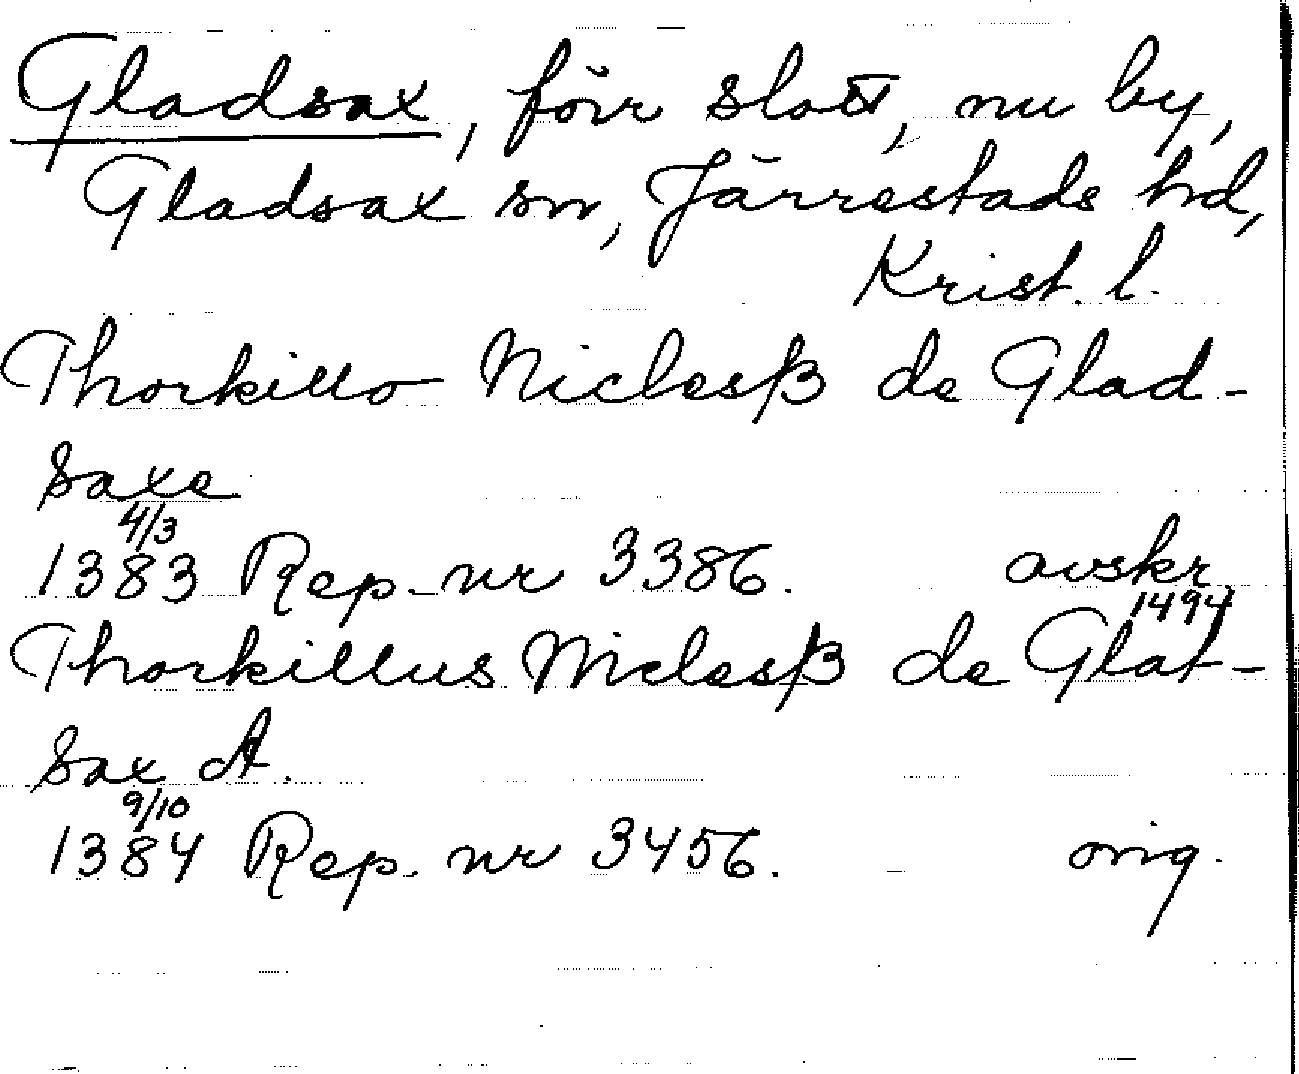 Gladsax, förr slott, nu by,
Gladsax sn, Järrestads hd,
Krist. l.
Thorkillo Niclesß de Glad-
saxe
4/3
1383 Rep. nr 3386. avskr.
1494
Thorkillus Niclesß de Glat-
sax A.
9/10
1384 Rep. nr 3456. orig.